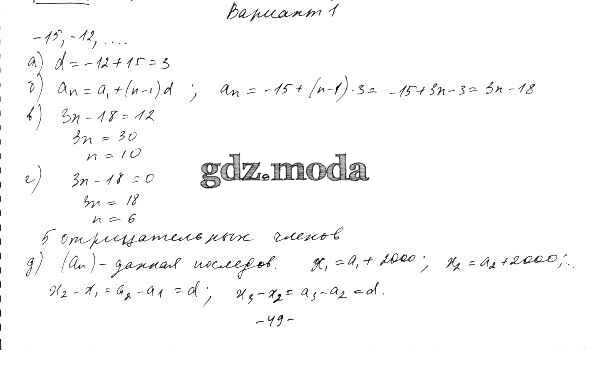 Вариант 1
-15, -12, ....
а) d = -12+15 = 3
б) an = a1+(n-1)d ; an = -15+(n-1)·3 = -15+3n-3 = 3n-18
в) 3n-18 = 12
3n = 30
n = 10
gdz.moda
г) 3n-18 = 0
3n = 18
n = 6
5 отрицательных членов
д) (an) - данная последов. x1 = a1 + 2000 ; x2 = a2+2000 ;..
x2 - x1 = a2 - a1 = d ; x3 - x2 = a3 - a2 = d.
-49-